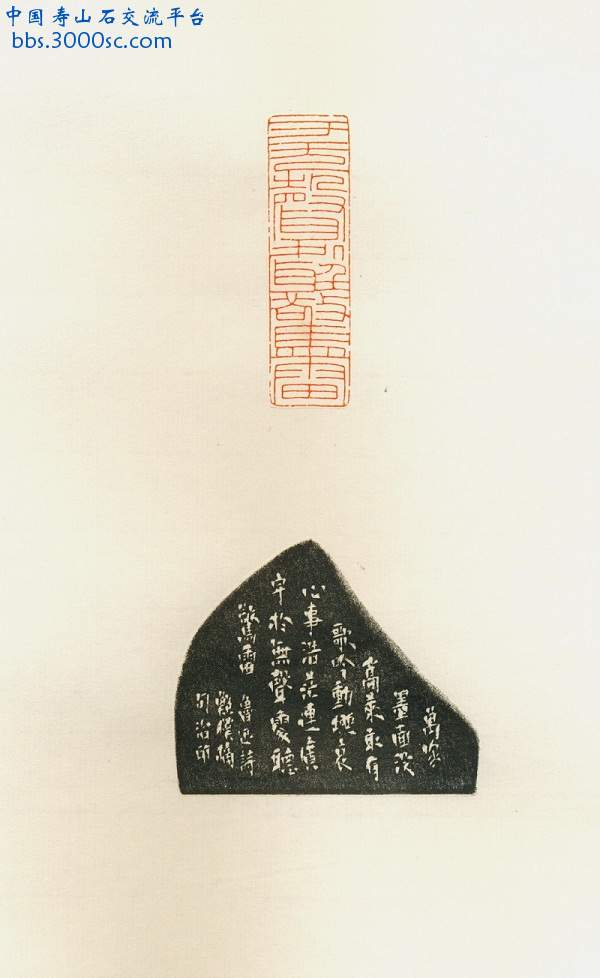 中国寿山石交流平台
bbs.3000sc.com
萬家
墨面沒
蒿萊敢有
歌吟動地哀
心事浩茫連廣
宇於無聲處聽
驚雷 魯迅詩
摘
句治印